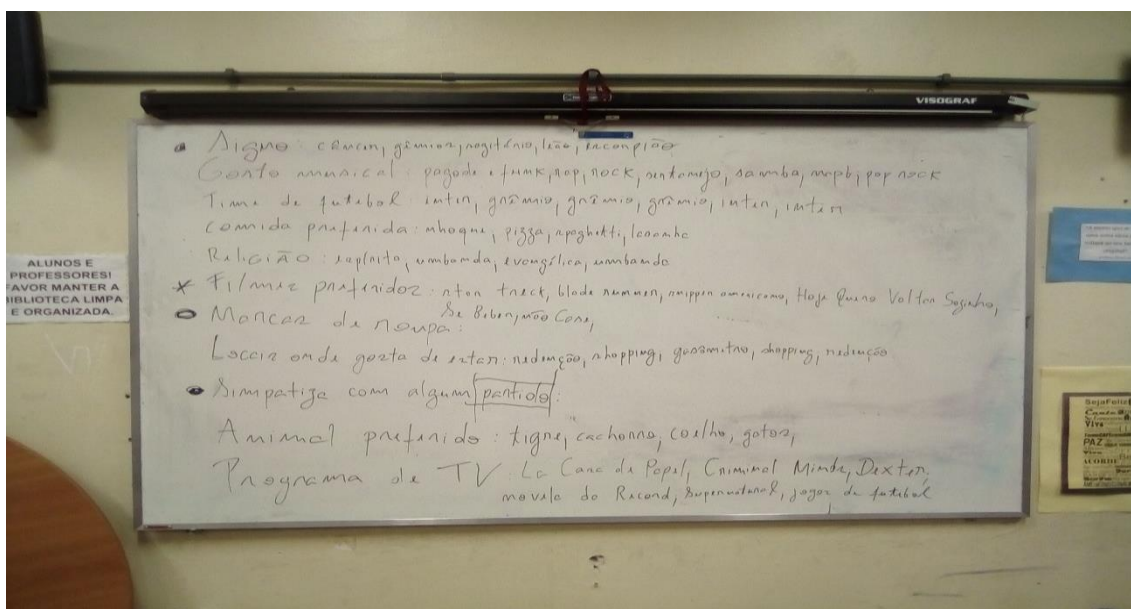 VISOGRAF
Signo: câncer, gêmios, sagitário, leão, escorpião
Gosto musical: pagode e funk, rap, rock, sertanejo, samba, mpb, pop rock
Time de futebol: inter, grêmio, grêmio, grêmio, inter, inter
Comida preferida: nhoque, pizza, spaghetti, lasanha
Religião: espírita, umbanda, evangélica, umbanda
Filmes preferidos: star treck, blade runner, sniper americano, Hoje Quero Voltar Sozinho,
Se Beber, não Case,
Marcas de roupa:
Locais onde gosta de estar: redenção, shopping, gasômetro, shopping, redenção
Simpatiza com algum partido:
Animal preferido: tigre, cachorro, coelho, gatos,
Programa de TV: La Casa de Papel, Criminal Minds, Dexter,
novela da Record, Supernatural, jogos de futebol
ALUNOS E
PROFESSORES!
FAVOR MANTER A
BIBLIOTECA LIMPA
E ORGANIZADA.
Viva
PAZ